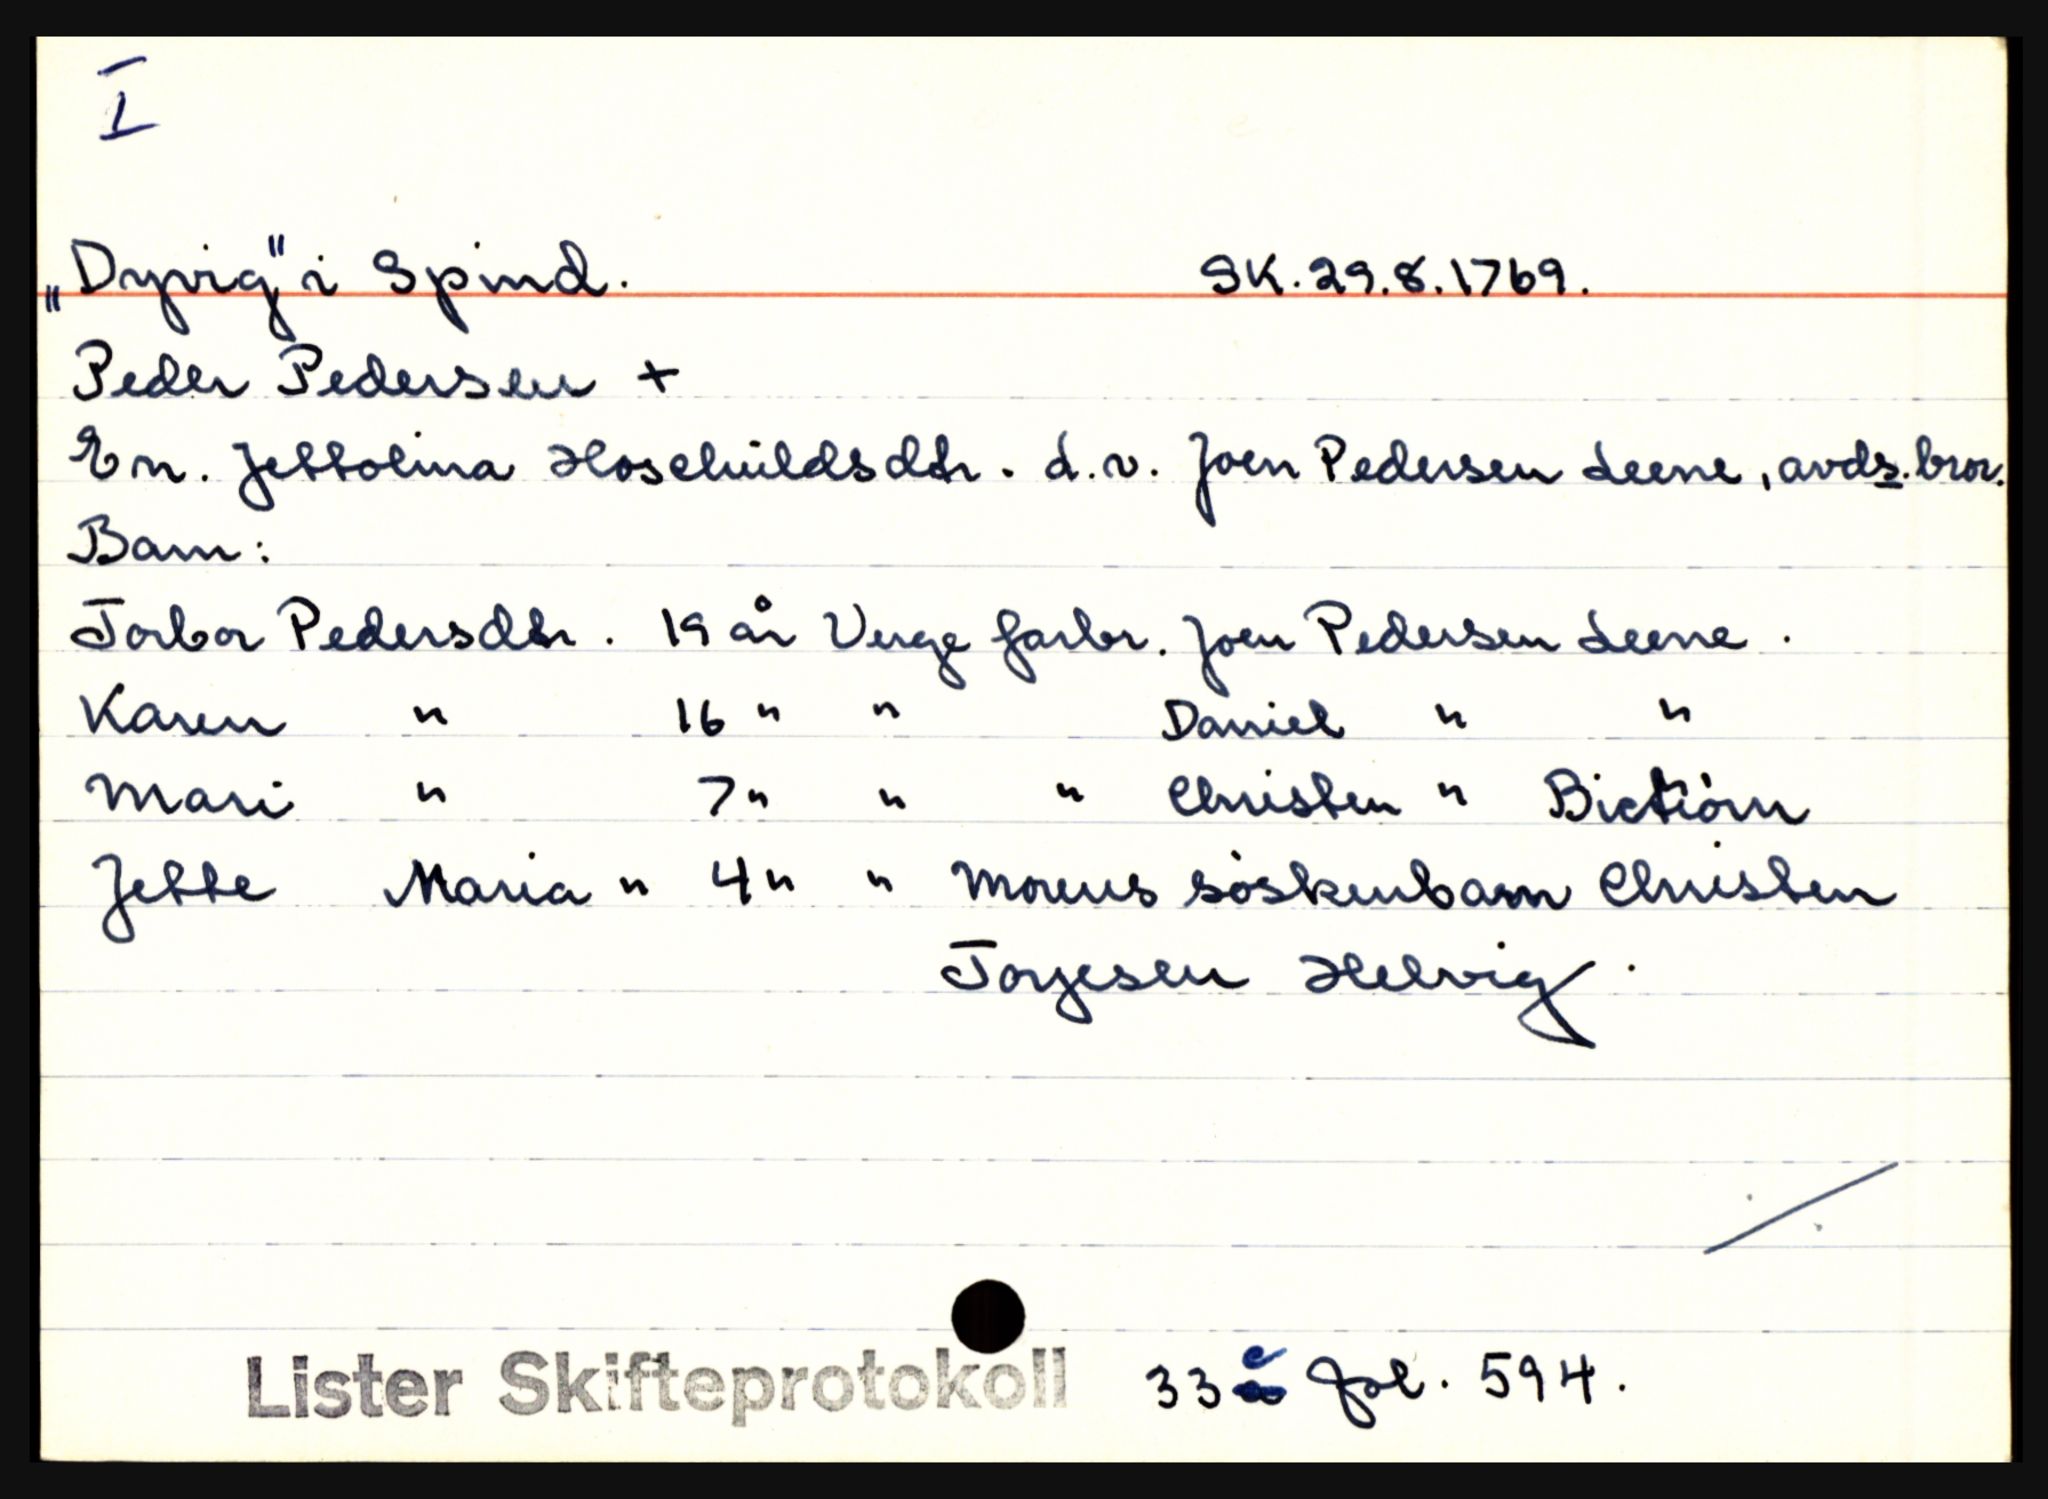 I
„Dyvig" i Spind. SK. 29.8.1769.
Peder Pedersen +
En. Jettolina Hoschuldsdtr. d.v. Joen Pedersen Leene, avds. bror.
Barn:
Torbor Pedersdtr. 19 år Verge farbr. Joen Pedersen Leene.
Karen " 16 " " Daniel " "
Mari " 7 " " " Christen " Bictiörn
Jette Maria " 4 " " Morens söskenbarn Christen
Torjesen Helvig.
Lister Skifteprotokoll 33 c fol. 594.